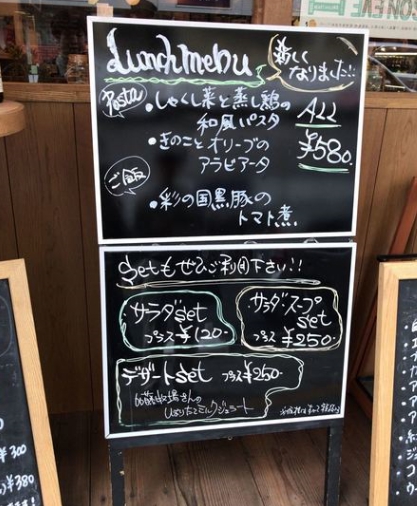 Lunch menu
新しく
なりました!!
Pasta
・しゃくし菜と蒸し鶏の
和風パスタ
・きのことオリーブの
アラビアータ
ALL
¥580.
ご飯
・彩の国黒豚の
トマト煮.
Setもぜひご利用下さい!!
サラダset
プラス¥120.
サラダ・スープ
set
プラス¥250.
デザートset プラス¥250.
加藤牧場さんの
しぼりたてミルクジェラート
¥300
¥380